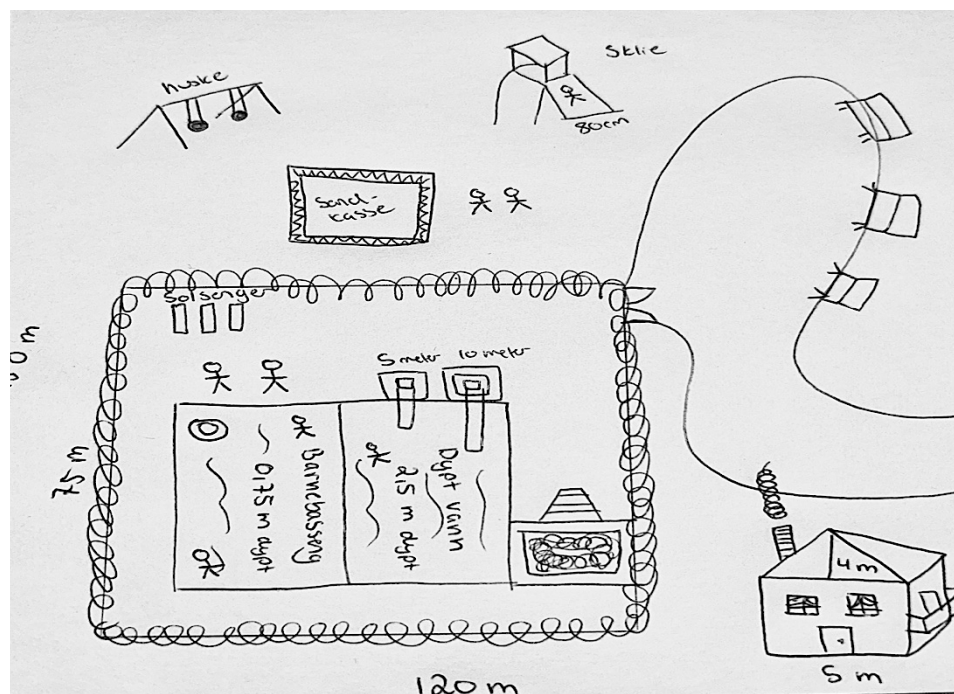 huske
Sklie
80cm
Sand-
kasse
Solsenger
5 meter
10 meter
0 m
75 m
Barnebasseng
0,75 m dypt
Dypt vann
2,5 m dypt
4 m
5 m
120 m